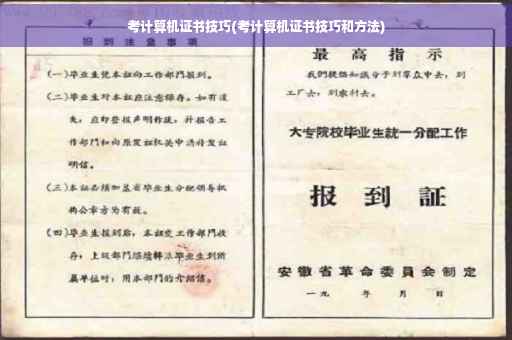 考计算机证书技巧(考计算机证书技巧和方法)
报到注意事项
(一)毕业生凭本证向工作部门报到。
(二)毕业生对本证应注意保存。如有遗
失,应即登报声明作废,并报告工
作部门和向原发证机关申请补发证
明信。
(三)本证必须加盖省毕业生分配领导机
构公章方为有效。
(四)毕业生报到后,本证交工作部门收
存;上级部门继续转派毕业生到所
属单位时,用本部门的介绍信。
最高指示
我们提倡知识分子到群众中去,到
工厂去,到农村去。
大专院校毕业生统一分配工作
报到証
安徽省革命委员会制定
一九 年 月 日